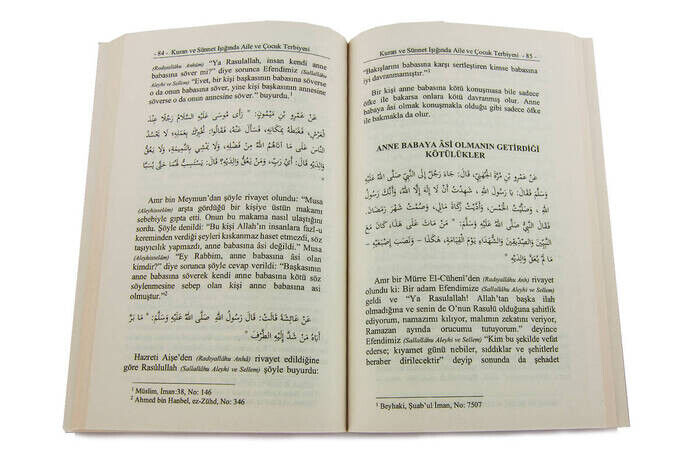 - 84 - Kuran ve Sünnet Işığında Aile ve Çocuk Terbiyesi
(Radıyallâhu Anhüm) "Ya Rasulallah, insan kendi anne
babasına söver mi?" diye sorunca Efendimiz (Sallallâhu
Aleyhi ve Sellem) "Evet, bir kişi başkasının babasına söverse
o da onun babasına söver, yine kişi başkasının annesine
söverse o da onun annesine söver." buyurdu.¹
عَنْ عَمْرِو بْنِ مَيْمُونٍ: " رَأَى مُوسَى عَلَيْهِ السَّلَامُ رَجُلًا عِنْدَ
الْعَرْشِ، فَغَبَطَهُ بِمَكَانِهِ، فَسَأَلَ عَنْهُ، فَقَالُوا: نُخْبِرُكَ بِعَمَلِهِ: لَا يَحْسُدُ
النَّاسَ عَلَى مَا آتَاهُمُ اللَّهُ مِنْ فَضْلِهِ، وَلَا يَمْشِي بِالنَّمِيمَةِ، وَلَا يَعُقُّ
وَالِدَيْهِ قَالَ: أَيْ رَبِّ، وَمَنْ يَعُقُّ وَالِدَيْهِ؟ قَالَ: يَسْتَسِبُّ لَهُمَا حَتَّى يُسَبَّا
Amr bin Meymun'dan şöyle rivayet olundu: "Musa
(Aleyhisselâm) arşta gördüğü bir kişiye üstün makamı
sebebiyle gıpta etti. Onun bu makama nasıl ulaştığını
sordu. Şöyle denildi: "Bu kişi Allah'ın insanlara fazl-ı
kereminden verdiği şeyleri kıskanmaz haset etmezdi, söz
taşıyıcılık yapmazdı, anne babasına âsi değildi." Musa
(Aleyhisselâm) "Ey Rabbim, anne babasına âsi olan
kimdir?" diye sorunca şöyle cevap verildi: "Başkasının
anne babasına söverek kendi anne babasına kötü söz
söylenmesine sebep olan kişi anne babasına asi
olmuştur."²
عَنْ عَائِشَةَ قَالَتْ: قَالَ رَسُولُ اللَّهِ صَلَّى اللَّهُ عَلَيْهِ وَسَلَّمَ: " مَا بَرَّ
أَبَاهُ مَنْ شَدَّ إِلَيْهِ الطَّرْفَ "
Hazreti Aişe'den (Radıyallâhu Anhâ) rivayet edildiğine
göre Rasûlullah (Sallallâhu Aleyhi ve Sellem) şöyle buyurdu:
¹ Müslim, İman:38, No: 146
² Ahmed bin Hanbel, ez-Zühd, No: 346
Kuran ve Sünnet Işığında Aile ve Çocuk Terbiyesi - 85 -
"Bakışlarını babasına karşı sertleştiren kimse babasına
iyi davranmamıştır."¹
Bir kişi anne babasına kötü konuşmasa bile sadece
öfke ile bakarsa onlara kötü davranmış olur. Anne
babaya âsi olmak konuşmakla olduğu gibi sadece öfke ile
bakmakla da olur.
ANNE BABAYA ÂSİ OLMANIN GETİRDİĞİ
KÖTÜLÜKLER
عَنْ عَمْرِو بْنِ مُرَّةَ الْجُهَنِيِّ، قَالَ: جَاءَ رَجُلٌ إِلَى النَّبِيِّ صَلَّى اللَّهُ عَلَيْهِ
وَسَلَّمَ فَقَالَ: يَا رَسُولَ اللَّهِ، شَهِدْتُ أَنْ لَا إِلَهَ إِلَّا اللَّهُ، وَأَنَّكَ رَسُولُ
اللَّهِ، وَصَلَّيْتُ الْخَمْسَ، وَأَدَّيْتُ زَكَاةَ مَالِي، وَصُمْتُ شَهْرَ رَمَضَانَ،
فَقَالَ النَّبِيُّ صَلَّى اللَّهُ عَلَيْهِ وَسَلَّمَ: " مَنْ مَاتَ عَلَى هَذَا كَانَ مَعَ
النَّبِيِّينَ وَالصِّدِّيقِينَ وَالشُّهَدَاءِ يَوْمَ الْقِيَامَةِ، هَكَذَا - وَنَصَبَ إِصْبَعَيْهِ -
مَا لَمْ يَعُقَّ وَالِدَيْهِ "
Amr bir Mürre El-Cühenî'den (Radıyallâhu Anh) rivayet
olundu ki: Bir adam Efendimize (Sallallâhu Aleyhi ve Sellem)
geldi ve "Ya Rasulallah! Allah'tan başka ilah
olmadığına ve senin de O'nun Rasulü olduğuna şahitlik
ediyorum, namazımı kılıyor, malımın zekatını veriyor,
Ramazan ayımda orucumu tutuyorum." deyince
Efendimiz (Sallallâhu Aleyhi ve Sellem) "Kim bu şekilde vefat
ederse; kıyamet günü nebiler, sıddıklar ve şehitlerle
beraber dirilecektir" deyip sonunda da şehadet
¹ Beyhaki, Şuab'ul İman, No: 7507